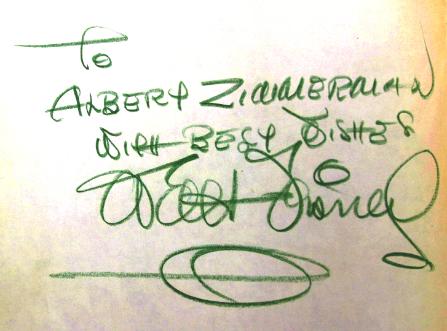 To
ALBERT ZIMMERMAN
WITH BEST WISHES
Walt Disney